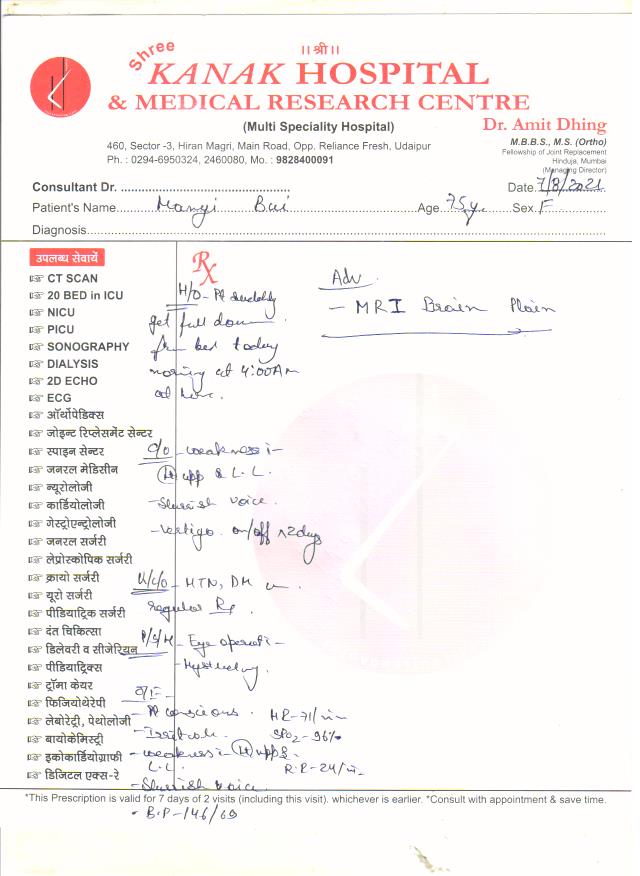 ॥ श्री ॥
Shree
KANAK HOSPITAL
& MEDICAL RESEARCH CENTRE
(Multi Speciality Hospital)
Dr. Amit Dhing
M.B.B.S., M.S. (Ortho)
Fellowship of Joint Replacement
Hinduja, Mumbai
(Managing Director)
460, Sector -3, Hiran Magri, Main Road, Opp. Reliance Fresh, Udaipur
Ph. : 0294-6950324, 2460080, Mo. : 9828400091
Consultant Dr.
Date 7/8/2021
Patient's Name Mangi Bai Age 75y. Sex F
Diagnosis
उपलब्ध सेवायें
CT SCAN
20 BED in ICU
NICU
PICU
SONOGRAPHY
DIALYSIS
2D ECHO
ECG
ऑर्थोपेडिक्स
जोइन्ट रिप्लेसमेंट सेन्टर
स्पाइन सेन्टर
जनरल मेडिसीन
न्यूरोलोजी
कार्डियोलोजी
गेस्ट्रोएन्ट्रोलोजी
जनरल सर्जरी
लेप्रोस्कोपिक सर्जरी
क्रायो सर्जरी
यूरो सर्जरी
पीडियाट्रिक सर्जरी
दंत चिकित्सा
डिलेवरी व सीजेरियन
पीडियाट्रिक्स
ट्रॉमा केयर
फिजियोथेरेपी
लेबोरेट्री, पेथोलोजी
बायोकेमिस्ट्री
इकोकार्डियोग्राफी
डिजिटल एक्स-रे
Rx
H/O - Pt suddenly
get full down
from bed today
morning at 4:00Am
at home.
C/O - weakness in
(Lt) upp & L.L.
- Slurish voice.
- Vertigo on/off x2days
K/C/O - HTN, DM
regular Rx.
P/S/H - Eye operati-
- Hysterectomy.
O/E -
- Pt conscious. HR-71/min
SPO2-96%
- weakness in (Lt) upp &
L.L. R.R-24/min
- Slurish voice.
- B.P-146/69
Adv
- MRI Brain Plain
*This Prescription is valid for 7 days of 2 visits (including this visit). whichever is earlier. *Consult with appointment & save time.